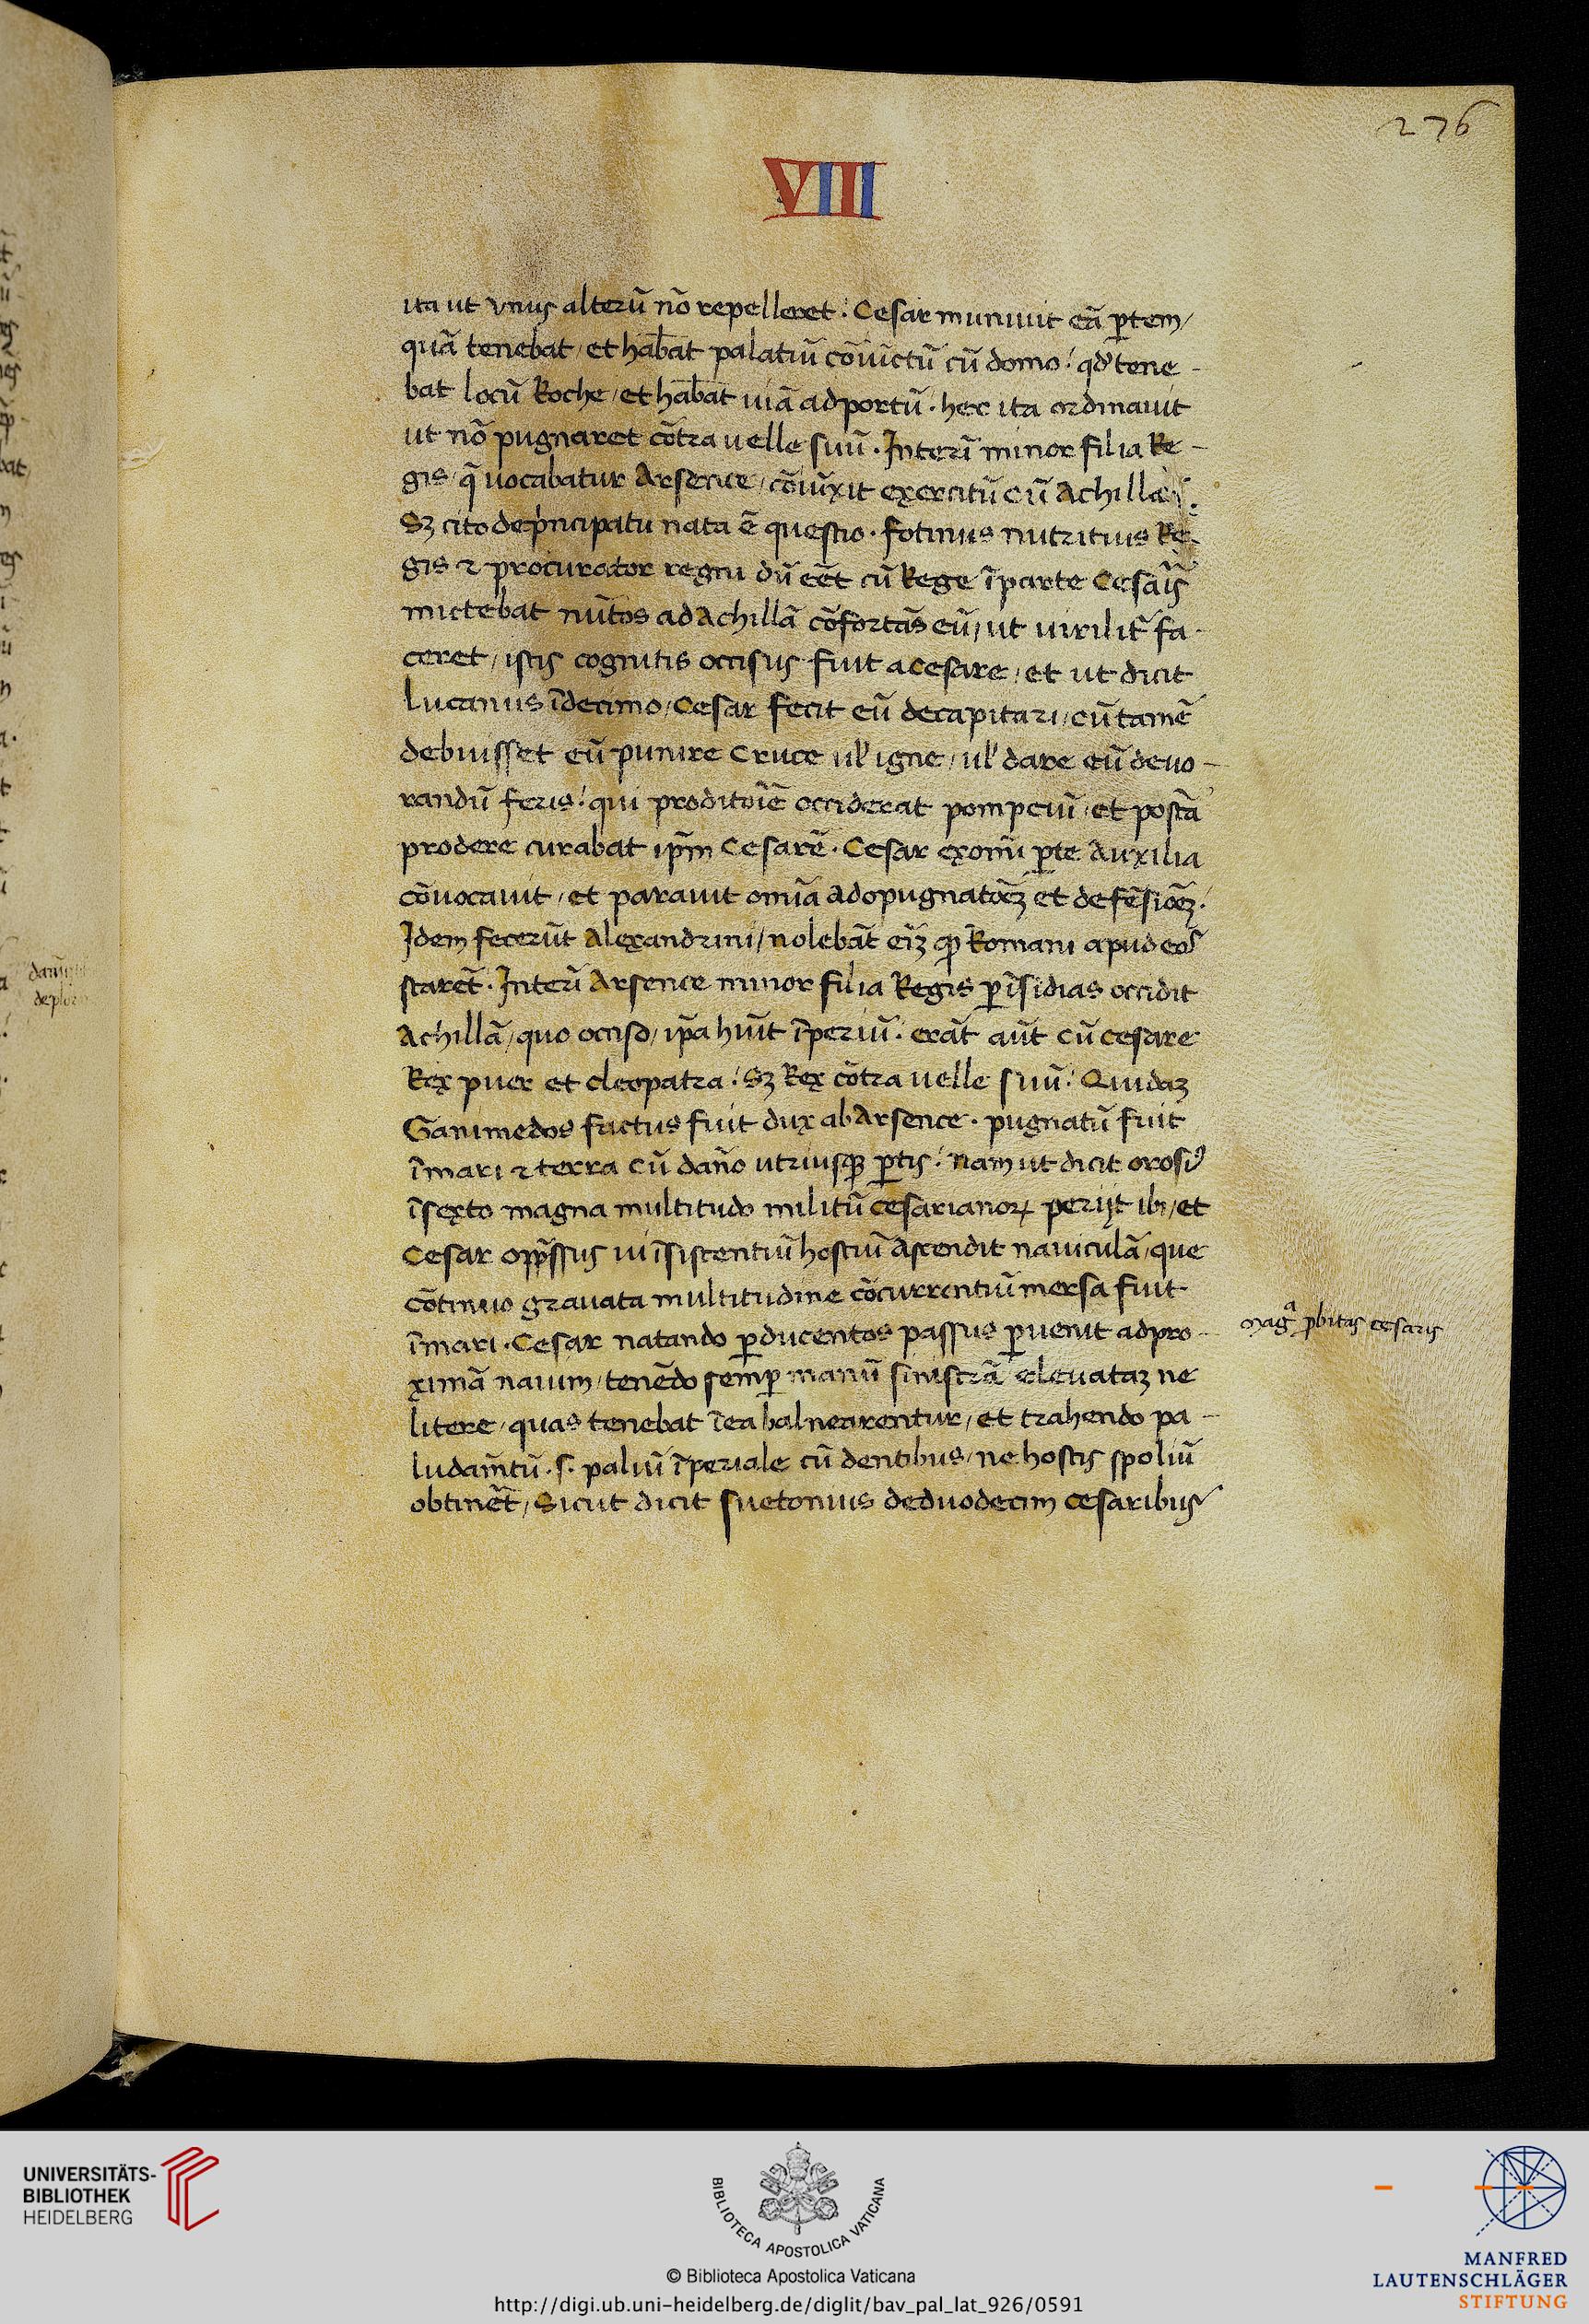 276
VIII
ita ut vnus alterū nō repelleret: Cesar muniuit eā ꝑtem/
quā tenebat/ et habēat palatiū cōiūctū cū domo: qđ tene-
bat locū Roche/ et habēat uiā ad portū. hec ita ordinauit
ut nō pugnaret cōtra uelle suū. Interī minor filia Re-
gis/ q̄ uocabatur Arsence/ cōiūxit exercitū cū Achilla:
Sꝫ cito de pͥncipatu nata ē questio. fotinus nutritius Re-
gis ⁊ procurator regni dū eēt cū Rege ī parte Cesaīs
mictebat nūtos ad Achillā cōfortās eū/ ut uirilit̄ fa-
ceret/ istis cognitis occisus fuit a cesare/ et ut dicit
Lucanus ī decimo/ Cesar fecit eū decapitari/ cū tamē
debuisset eū punire cruce ul' igne/ ul' dare eū deuo-
randū feris: qui proditoīe occiderat pompeiū/ et postā
prodere curabat ip̄m Cesarē. Cesar ex om̄i ꝑte Auxilia
cōuocauit/ et parauit om̄ia ad opugnatōeꝫ et defēsiōeꝫ.
Idem fecerūt Alexandrini/ nolebāt eīꝫ ꝙ Romani apud eos
starēt. Interī Arsence minor filia Regis ꝑ īsidias occidit
Achillā/ quo occiso/ ip̄a hūit īperiū: erāt aūt cū cesare
Rex puer et cleopatra: Sꝫ Rex cōtra uelle suū: Quidaꝫ
Ganimedos factus fuit dux ab Arsence. pugnatū fuit
ī mari ⁊ terra cū dan̄o utriusqꝫ ꝑtis: nam ut dicit orosiꝰ
ī sexto magna multitudo militū cesarianoꝝ perijt ibi/ et
Cesar opp̄ssus ui īsistentiū hostiū Ascendit nauiculā/ que
cōtinuo grauata multitudine cōcurrentiū mersa fuit
ī mari. Cesar natando ꝑ ducentos passus ꝑuenit ad pro-
ximā nauim/ tenēdo semꝑ manū sinistrā eleuataꝫ ne
litere/ quas tenebat ī ea balnearentur/ et trahendo pa-
ludam̄tū. s. paliū īperiale cū dentibus/ ne hostis spoliū
obtinēt/ Sicut dicit suetonius de duodecim cesaribus
magͣ ꝓbitas cesaris
UNIVERSITÄTS-
BIBLIOTHEK
HEIDELBERG
BIBLIOTECA APOSTOLICA VATICANA
© Biblioteca Apostolica Vaticana
http://digi.ub.uni-heidelberg.de/diglit/bav_pal_lat_926/0591
MANFRED
LAUTENSCHLÄGER
STIFTUNG